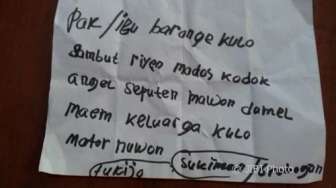 Pak/ibu barange kulo
Sambut riyen mados kodok
angel seputen mawon damel
maem keluarga kulo
Mator nuwon
Tukijo Sukiman